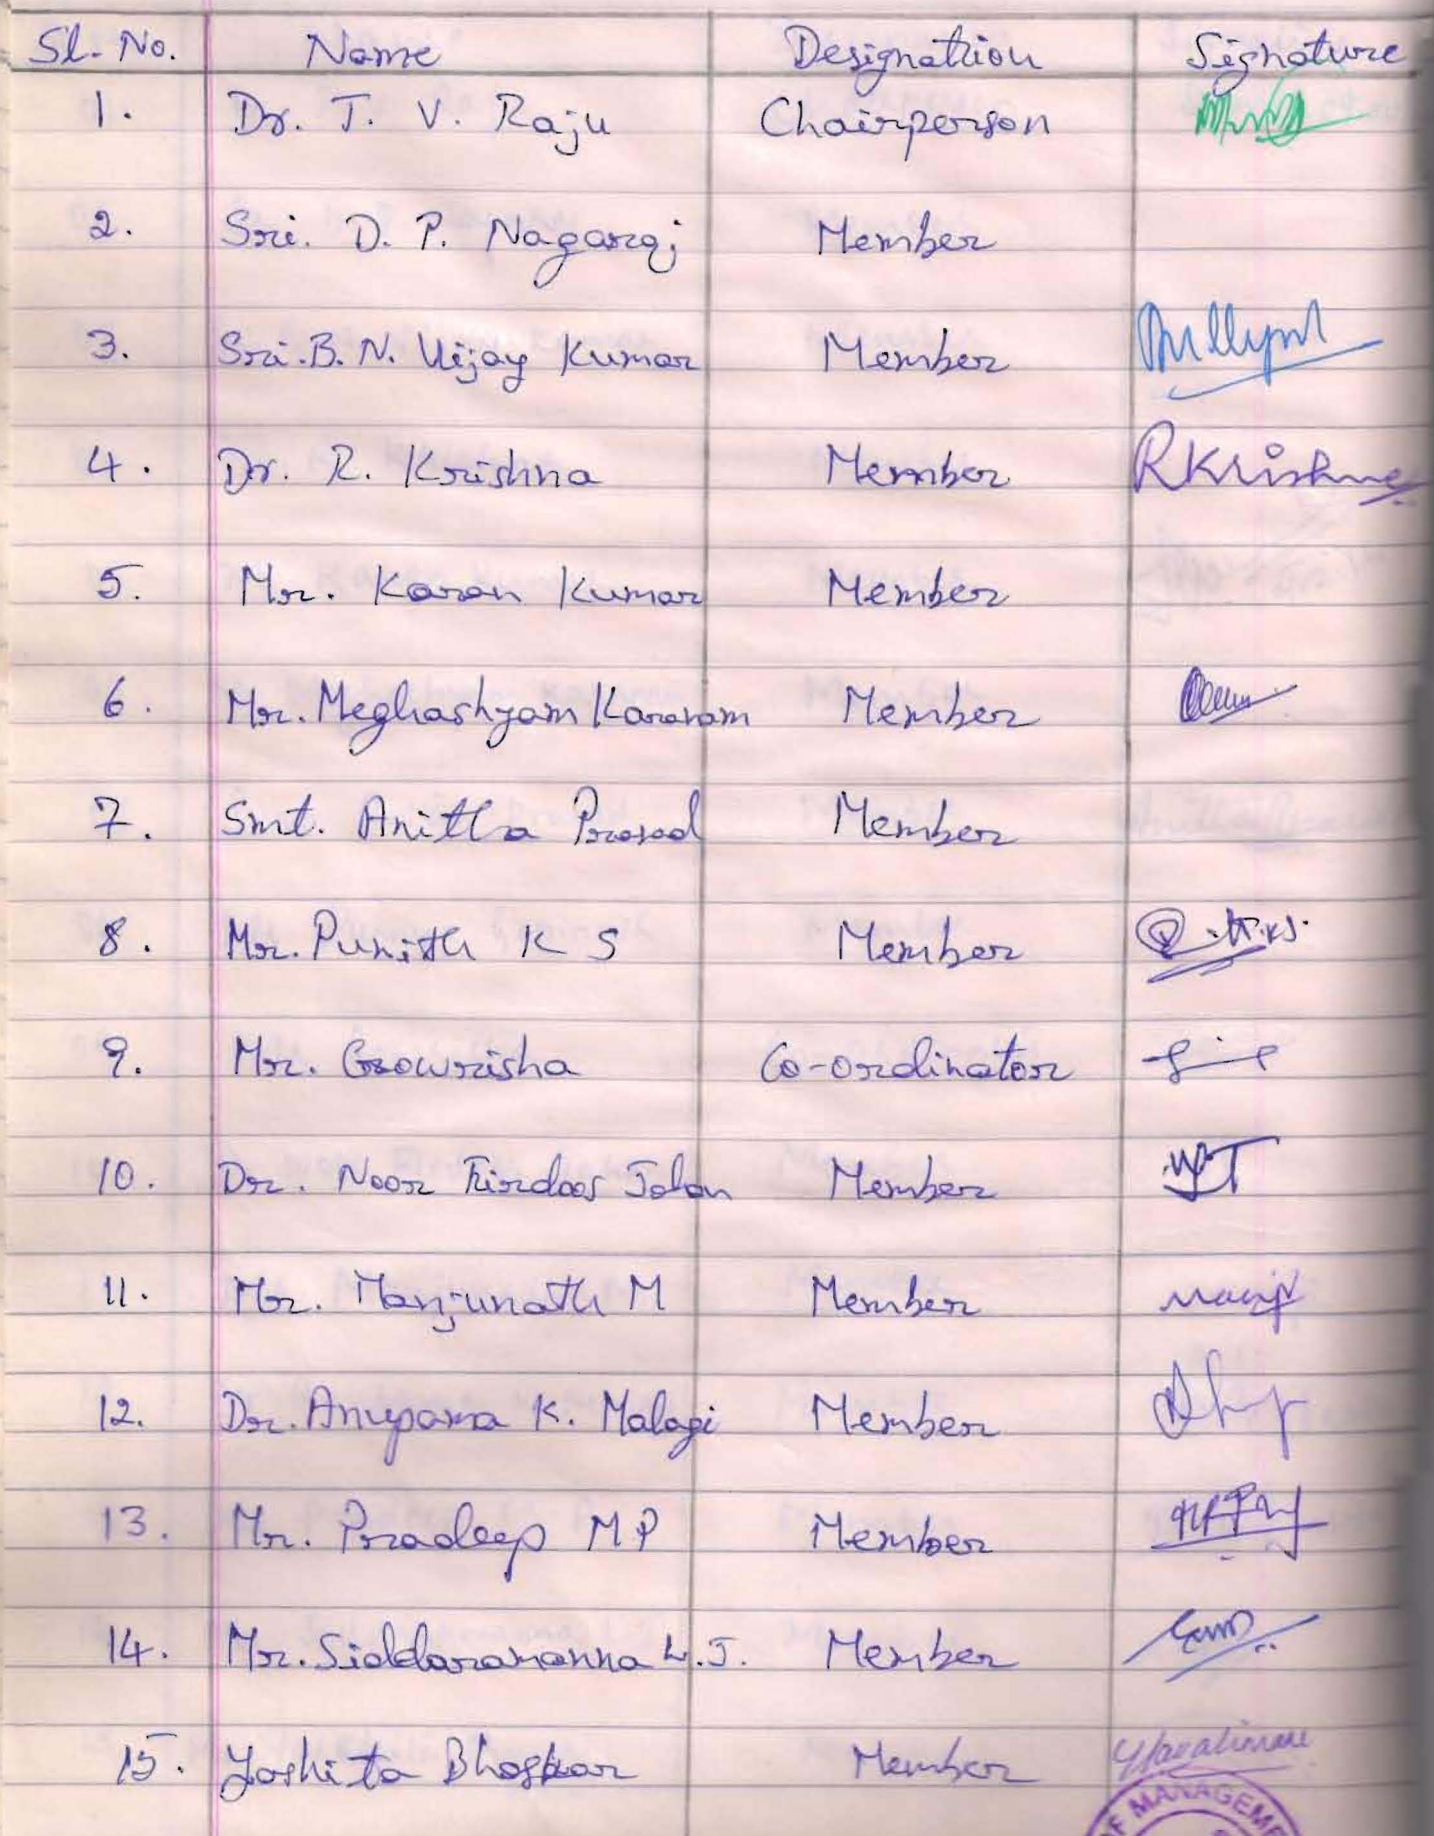 Sl. No. Name Designation Signature
1. Dr. T. V. Raju Chairperson
2. Sri. D. P. Nagaraj Member
3. Sri. B. N. Vijay Kumar Member
4. Dr. R. Krishna Member RKrishna
5. Mr. Karan Kumar Member
6. Mr. Meghashyam Karanam Member
7. Smt. Anitha Prasad Member
8. Mr. Punith K S Member
9. Mr. Gowrisha Co-ordinator
10. Dr. Noor Firdoos Jahan Member
11. Mr. Manjunath M Member
12. Dr. Anupama K. Malagi Member
13. Mr. Pradeep M P Member
14. Mr. Siddaramanna L.J. Member
15. Yashita Bhaskar Member
OF MANAGEM